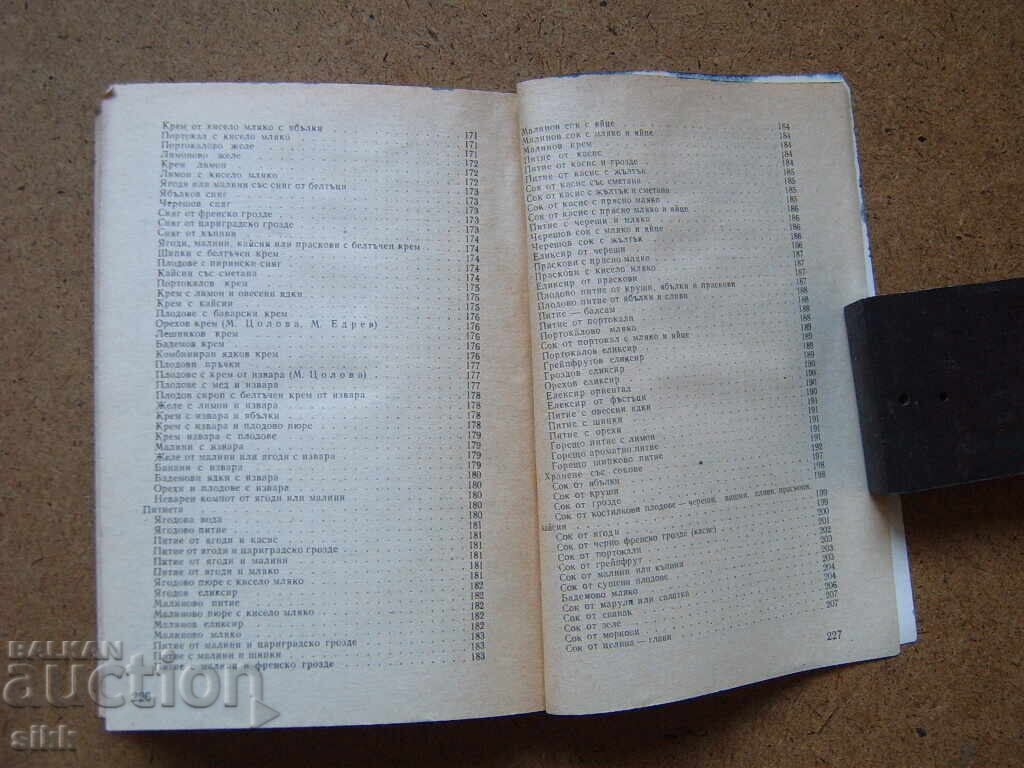 Крем от кисело мляко с ябълки
Портокал с кисело мляко 171
Портокалово желе 171
Лимоново желе 171
Крем лимон 172
Лимон с кисело мляко 172
Ягоди или малини със сняг от белтъци 172
Ябълков сняг 173
Черешов сняг 173
Сняг от френско грозде 173
Сняг от цариградско грозде 173
Сняг от къпини 173
Ягоди, малини, кайсии или праскови с белтъчен крем 174
Шипки с белтъчен крем 174
Плодове с пирински сняг 174
Кайсии със сметана 174
Портокалов крем 174
Крем с лимон и овесени ядки 175
Крем с кайсии 175
Плодове с баварски крем 175
Орехов крем (М. Цолова, М. Едрев) 176
Лешников крем 176
Бадемов крем 176
Комбиниран ядков крем 176
Плодови пръчки 176
Плодове с крем от извара (М. Цолова) 177
Плодове с мед и извара 177
Плодов сироп с белтъчен крем от извара 177
Желе с лимон и извара 178
Крем с извара и ябълки 178
Крем с извара и плодово пюре 178
Крем извара с плодове 179
Малини с извара 179
Желе от малини или ягоди с извара 179
Банани с извара 179
Бадемови ядки с извара 180
Орехи и плодове с извара 180
Неварен компот от ягоди или малини 180
Питиета 180
Ягодова вода 180
Ягодово питие 181
Питие от ягоди и касис 181
Питие от ягоди и цариградско грозде 181
Питие от ягоди и малини 181
Питие от ягоди и мляко 181
Ягодово пюре с кисело мляко 181
Ягодов еликсир 182
Малиново питие 182
Малиново пюре с кисело мляко 182
Малинов еликсир 182
Малиново мляко 182
Питие от малини и цариградско грозде 183
Питие с малини и шипки 183
Питие с малини и френско грозде 183
226
Малинов сок с яйце 184
Малинов сок с мляко и яйце 184
Малинов крем 184
Питие от касис 184
Питие от касис и грозде 184
Питие от касис с жълтък 185
Сок от касис със сметана 185
Сок от касис с жълтък и сметана 185
Сок от касис с прясно мляко 185
Сок от касис с прясно мляко и яйце 186
Питие с череши и мляко 186
Черешов сок с мляко и яйце 186
Черешов сок с жълтък 186
Еликсир от череши 186
Праскови с прясно мляко 187
Праскови с кисело мляко 187
Еликсир от праскови 187
Плодово питие от круши, ябълки и праскови 187
Плодово питие от ябълки и сливи 188
Питие — балсам 188
Питие от портокали 188
Портокалово мляко 188
Сок от портокал с мляко и яйце 189
Портокалов еликсир 189
Грейпфрутов еликсир 189
Гроздов еликсир 189
Орехов еликсир 190
Елексир ориентал 190
Еликсир от фъстъци 190
Питие с овесени ядки 191
Питие с шипки 191
Питие с орехи 191
Горещо питие с лимон 191
Горещо ароматно питие 191
Горещо шипково питие 192
Хранене със сокове 197
Сок от ябълки 198
Сок от круши 198
Сок от грозде
Сок от костилкови плодове — череши, вишни, сливи, праскови,
кайсии 199
Сок от ягоди 199
Сок от черно френско грозде (касис) 200
Сок от портокали 201
Сок от грейпфрут 202
Сок от малини или къпини 202
Сок от сушени плодове 203
Бадемово мляко 203
Сок от марули или салатка 204
Сок от спанак 206
Сок от зеле 207
Сок от моркови 207
Сок от целина — глави
227
BALKAN
auction
sikk